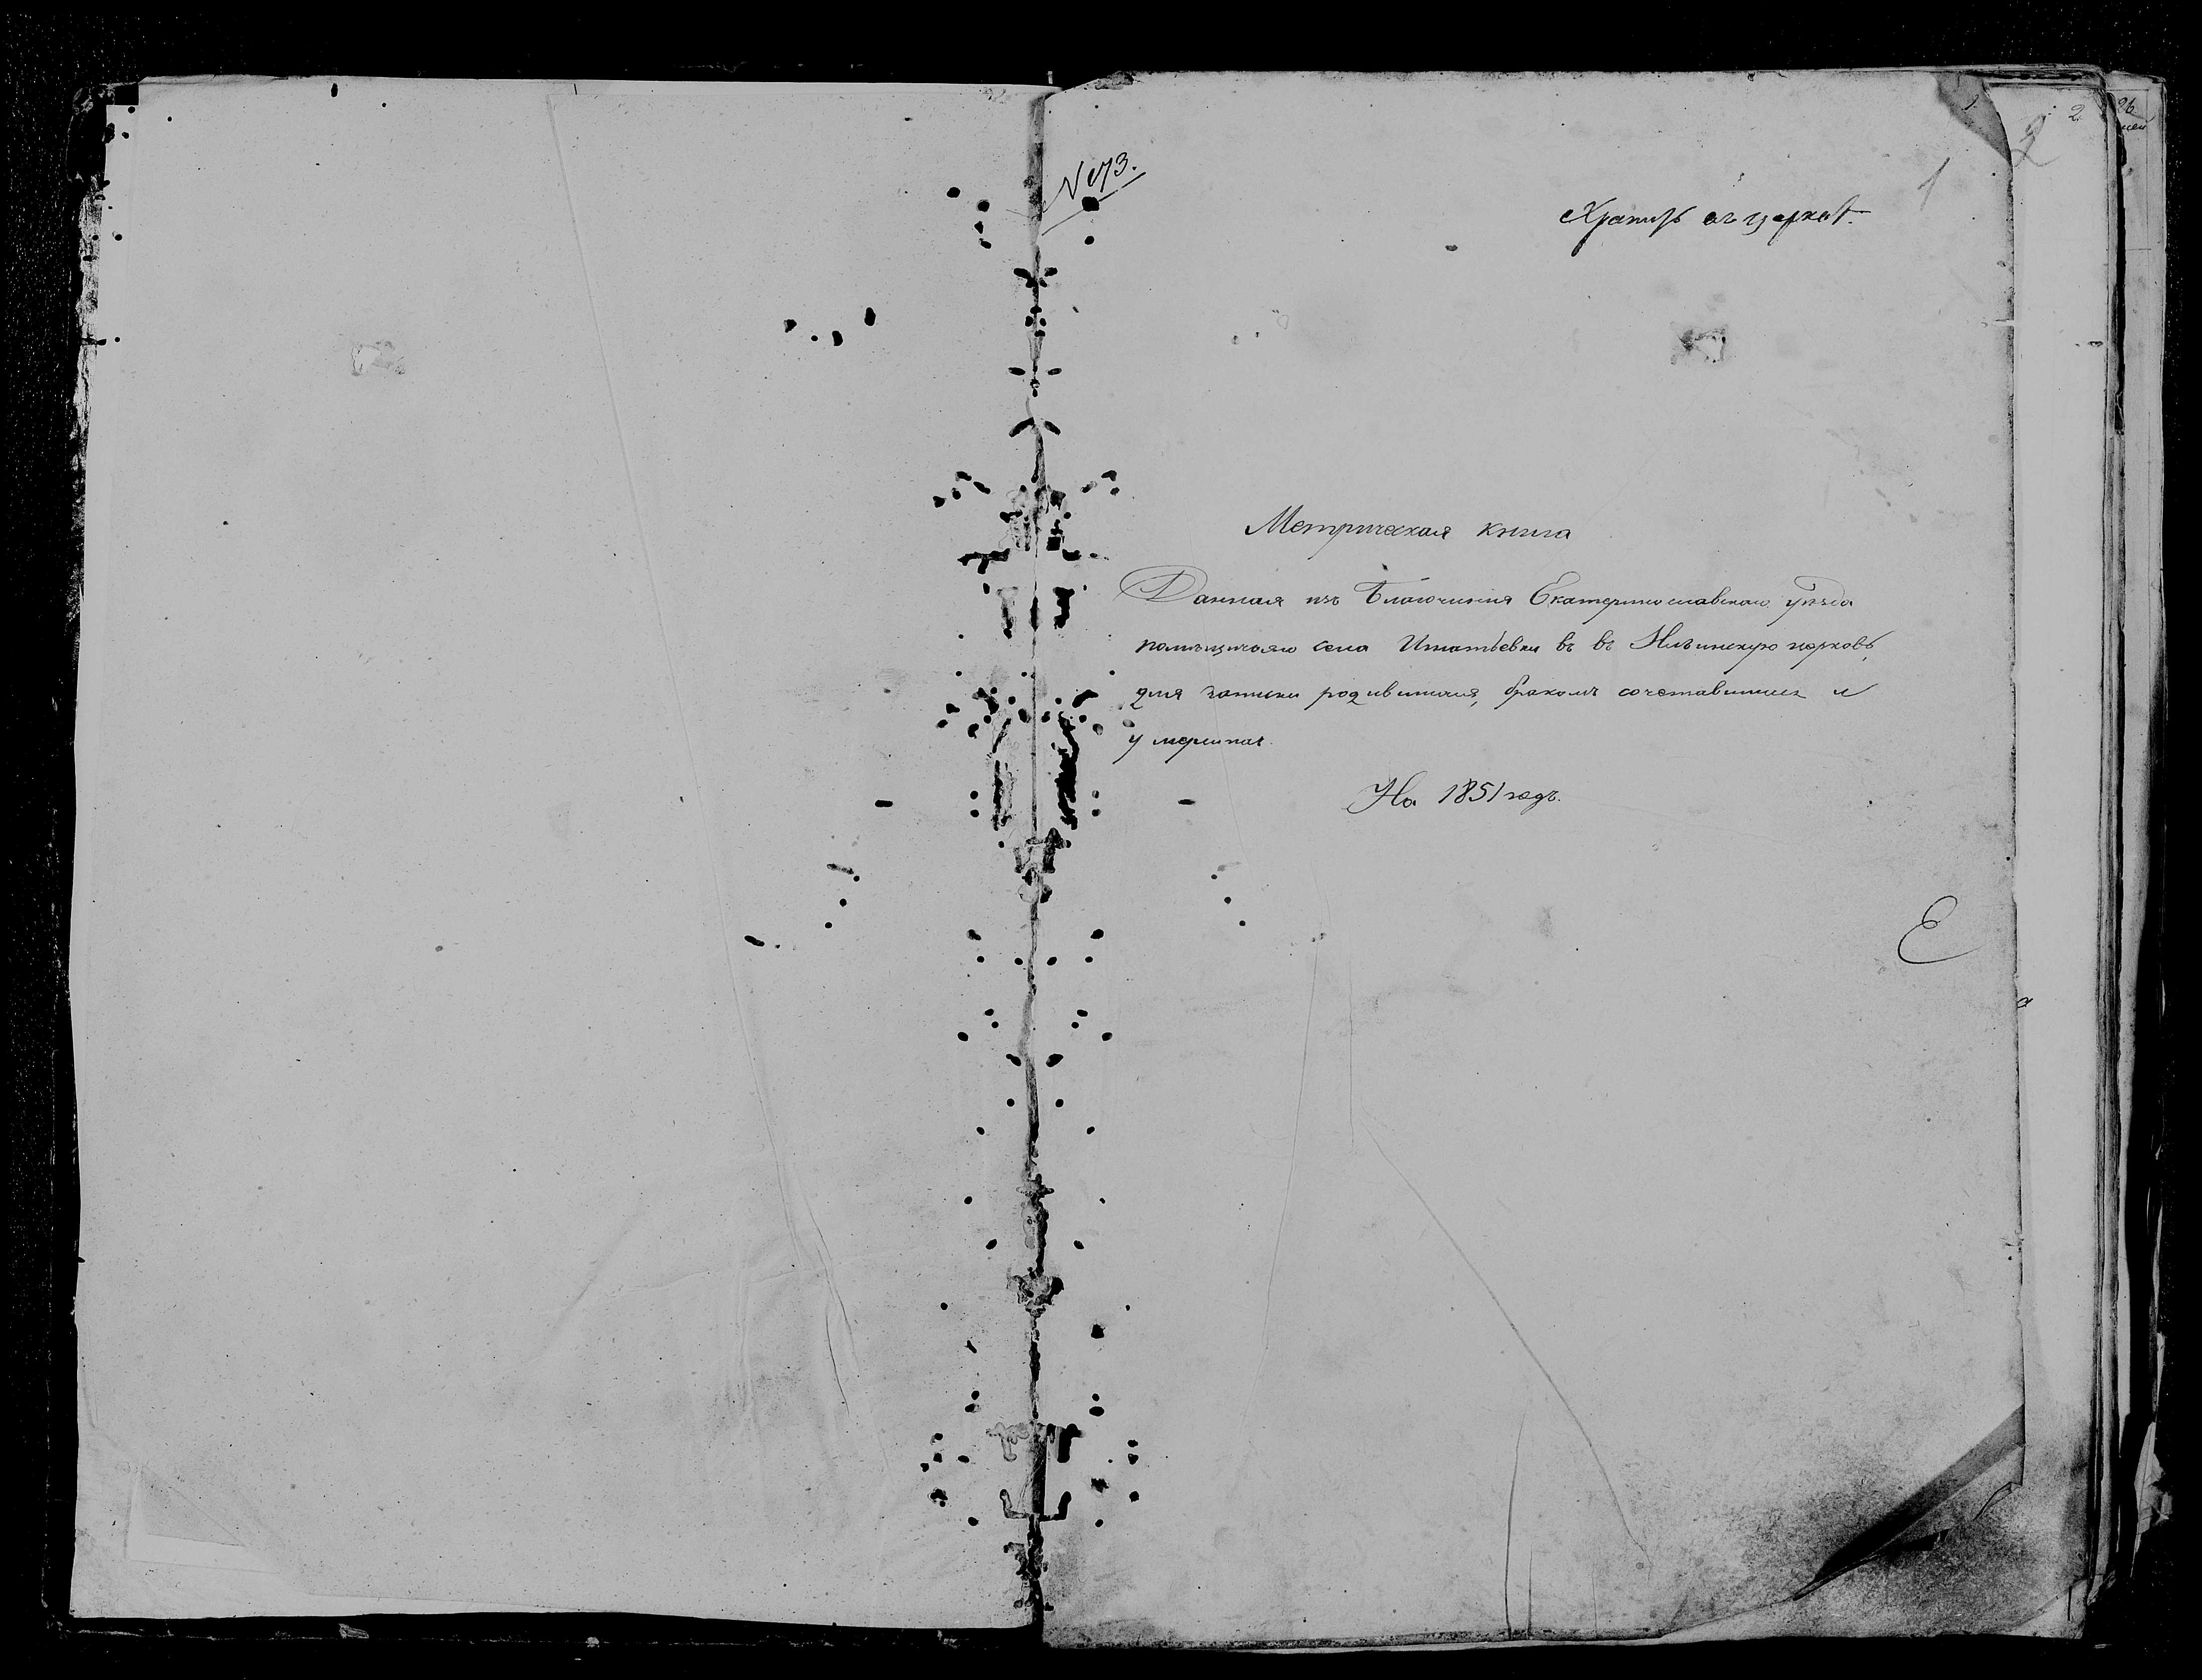 № 73.
1
Хранить въ церкві.
Метрическая книга
Данная изъ Благочинія Екатеринославскаго уѣзда
помѣщичьяго села Игнатьевки въ въ Ильинскую церковь,
для записки родившихся, бракомъ сочетавшихся и
умершихъ.
На 1851 годъ.
Е
2
2
26